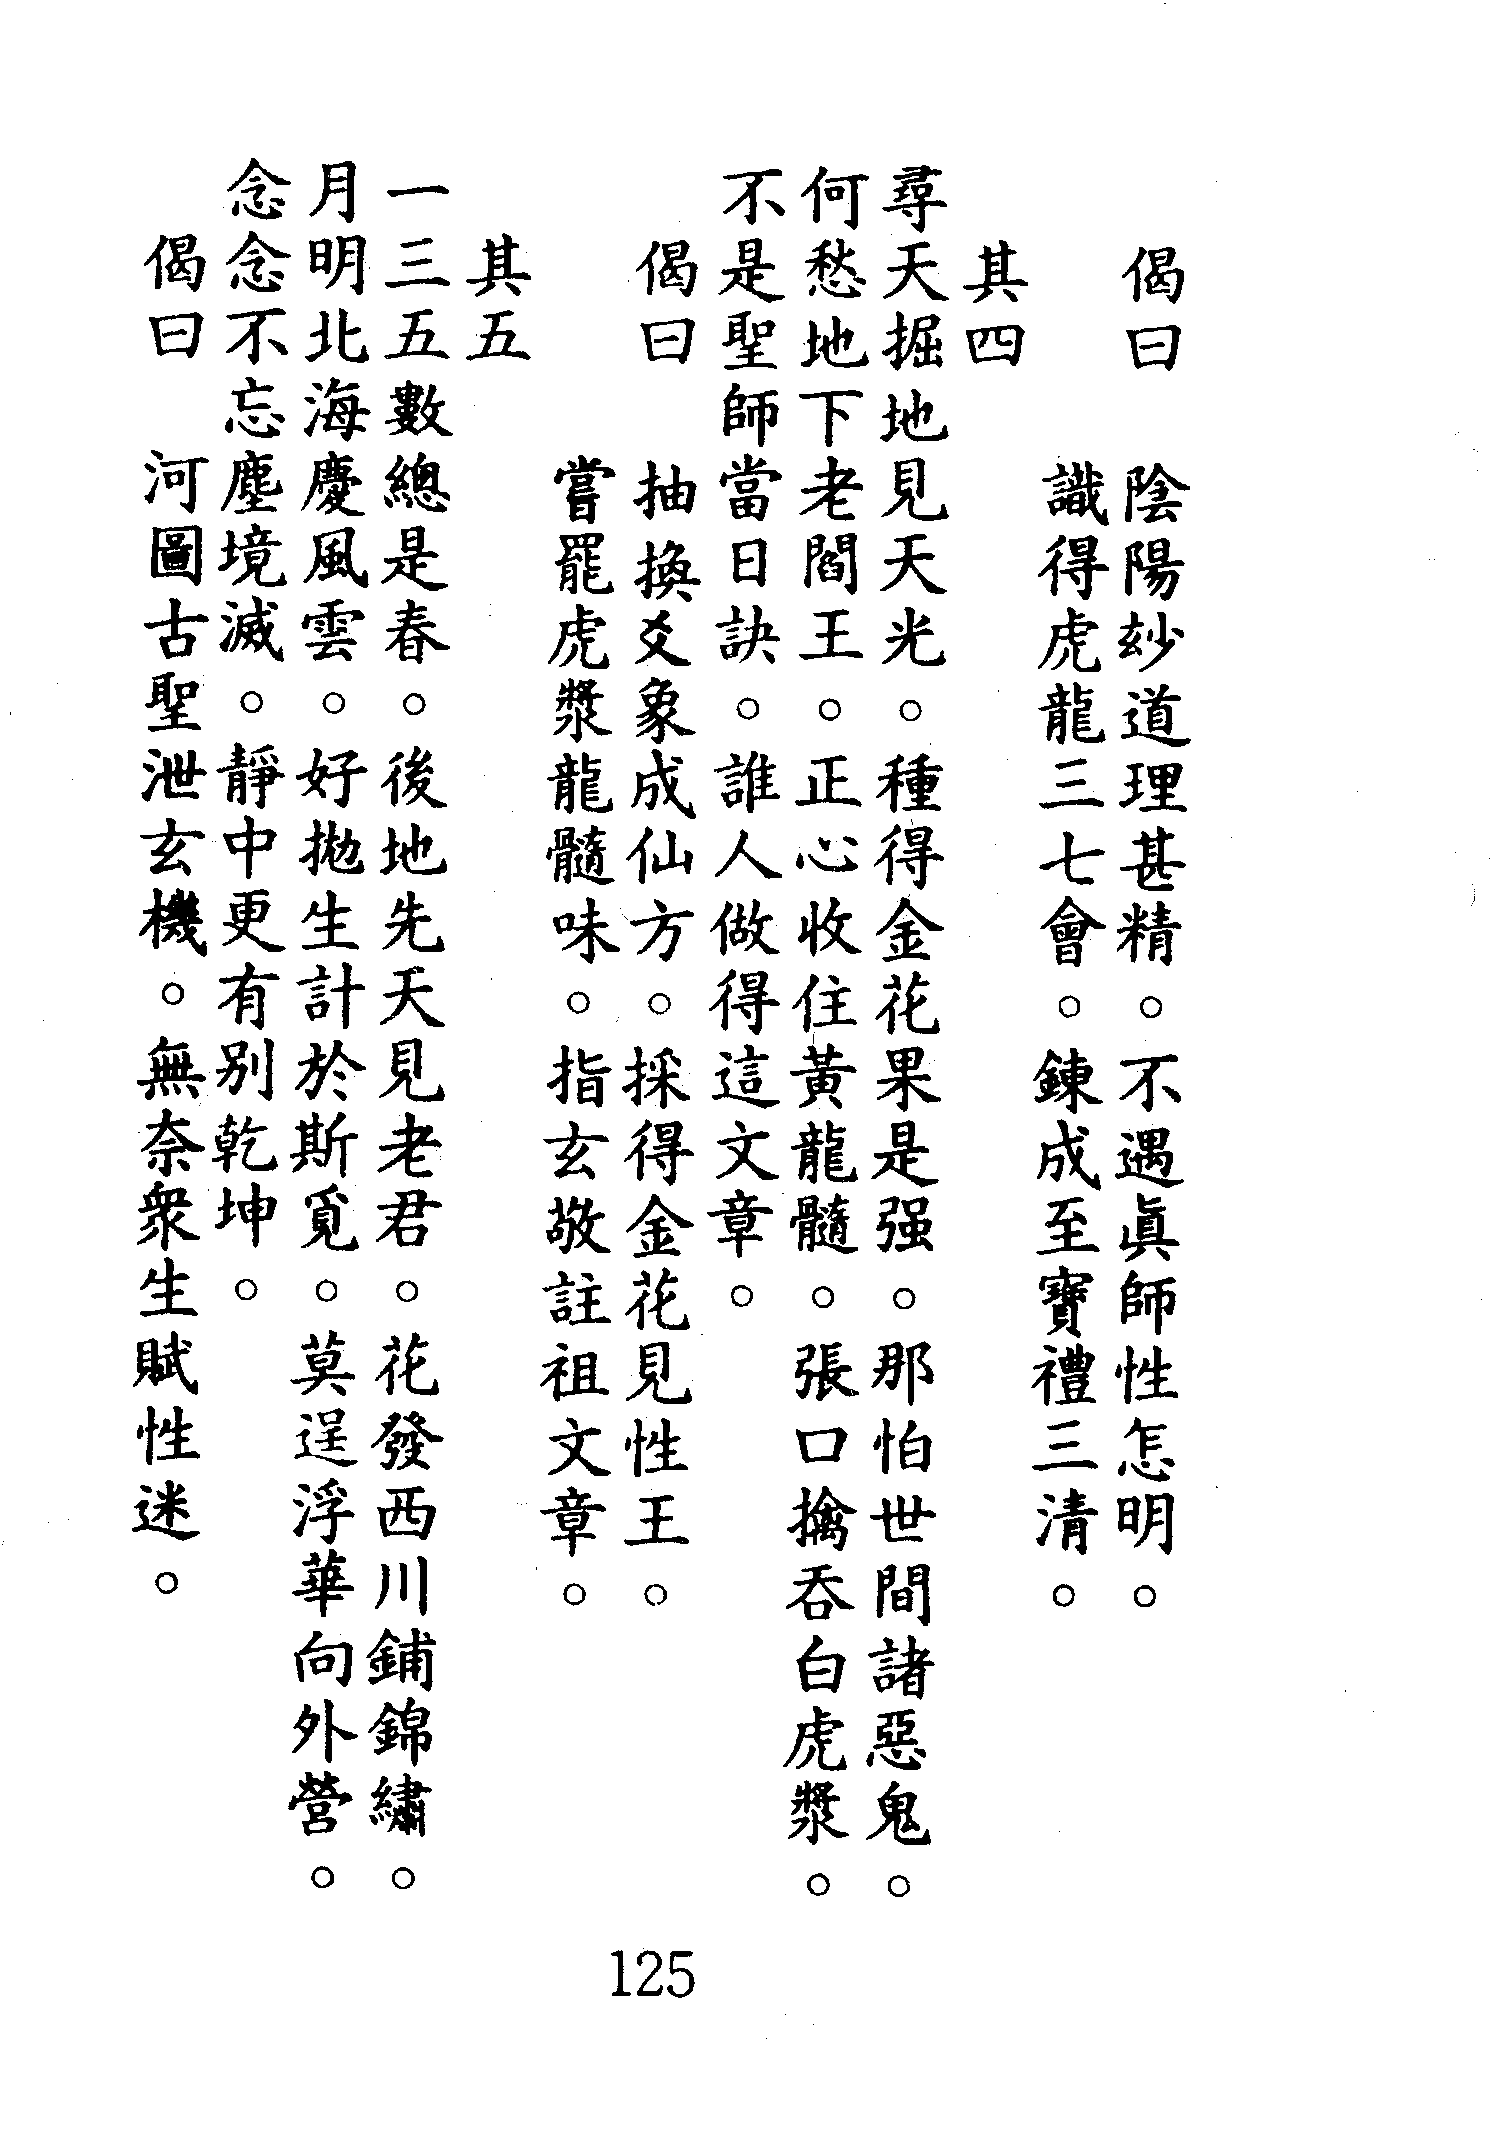 偈曰　陰陽玅道理甚精。不遇眞師性怎明。
識得虎龍三七會。鍊成至寶禮三清。
其四
尋天掘地見天光。種得金花果是强。那怕世間諸惡鬼。
何愁地下老閻王。正心收住黃龍髓。張口擒吞白虎漿。
不是聖師當日訣。誰人做得這文章。
偈曰　抽換爻象成仙方。採得金花見性王。
嘗罷虎漿龍髓味。指玄敬註祖文章。
其五
一三五數總是春。後地先天見老君。花發西川鋪錦繡。
月明北海慶風雲。好拋生計於斯覓。莫逞浮華向外營。
念念不忘塵境滅。靜中更有别乾坤。
偈曰　河圖古聖泄玄機。無奈衆生賦性迷。
125